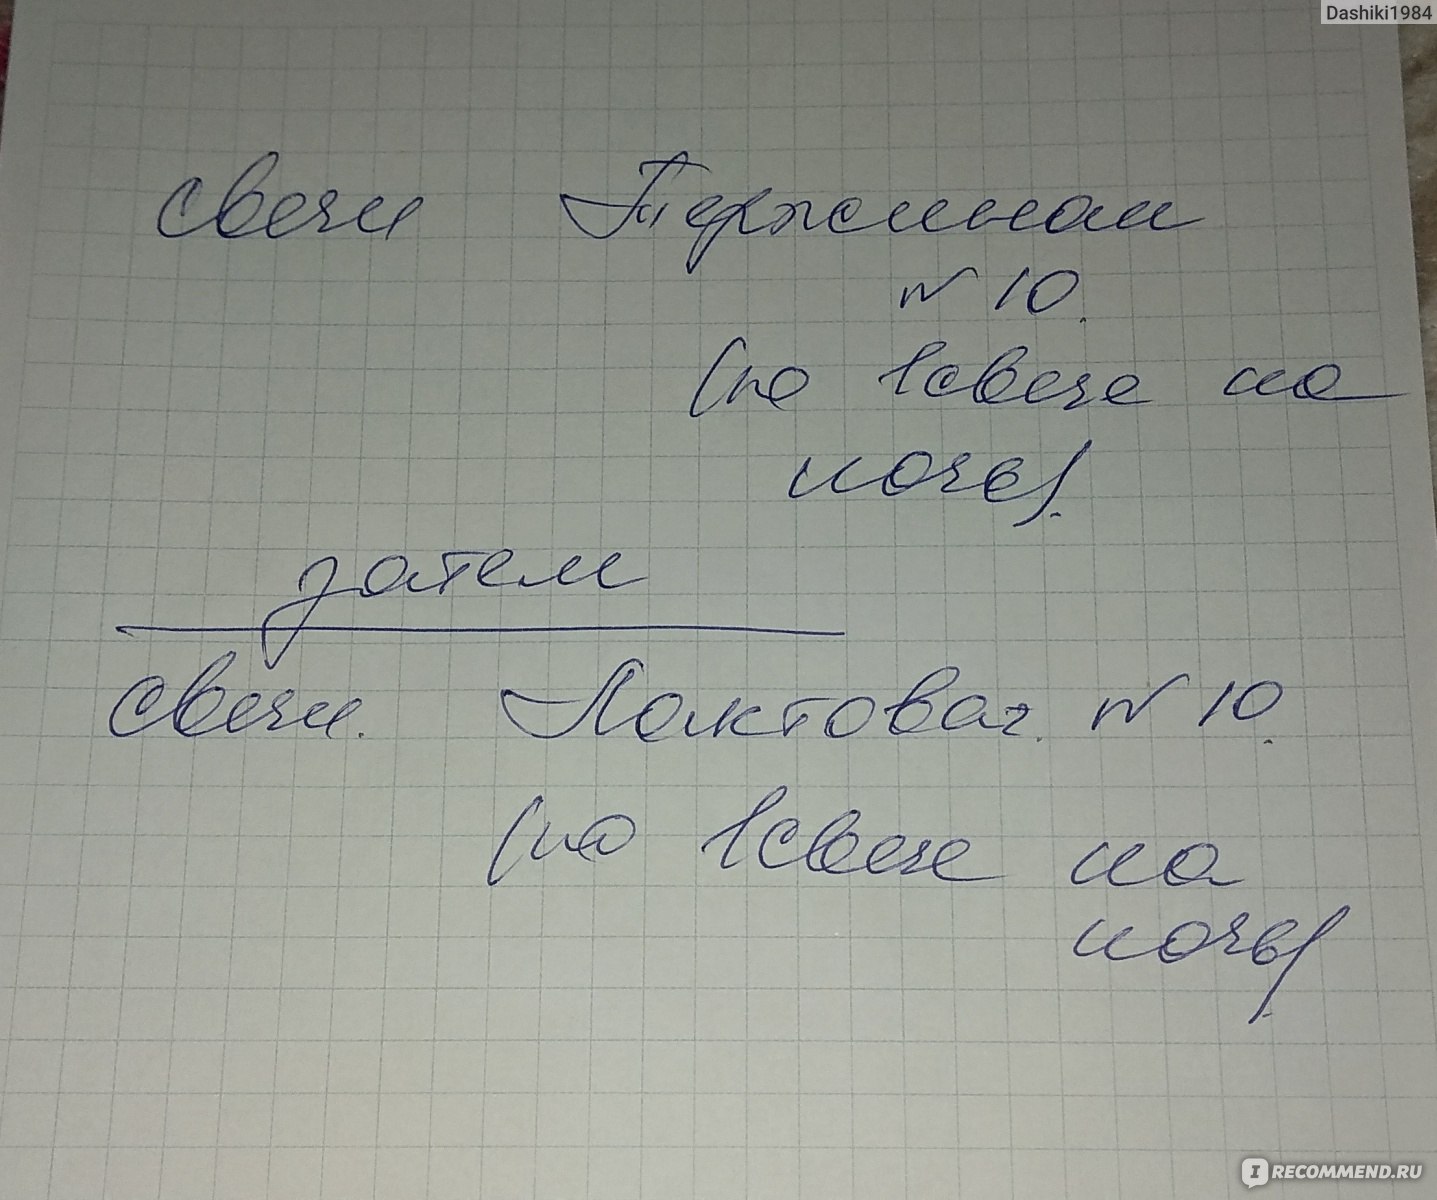 Dashiki1984
свечи Тержинан
№ 10.
(по 1 свече на
ночь).
затем
свечи. Лактоваг. № 10.
(по 1 свече на
ночь).
IRECOMMEND.RU